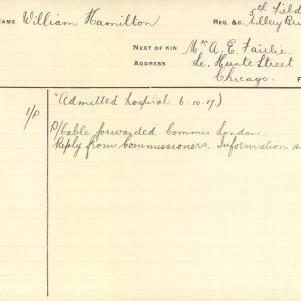 NAME William Hamilton
5th Field
REG &c. tillery Bri
NEXT OF KIN Mrs A. E. Fairlie.
ADDRESS Le Hunte Street
Chicago.
F
(Admitted hospital 6-10-17)
1/P
P/Cable forwarded Commis London.
Reply from Commissioners. Information s